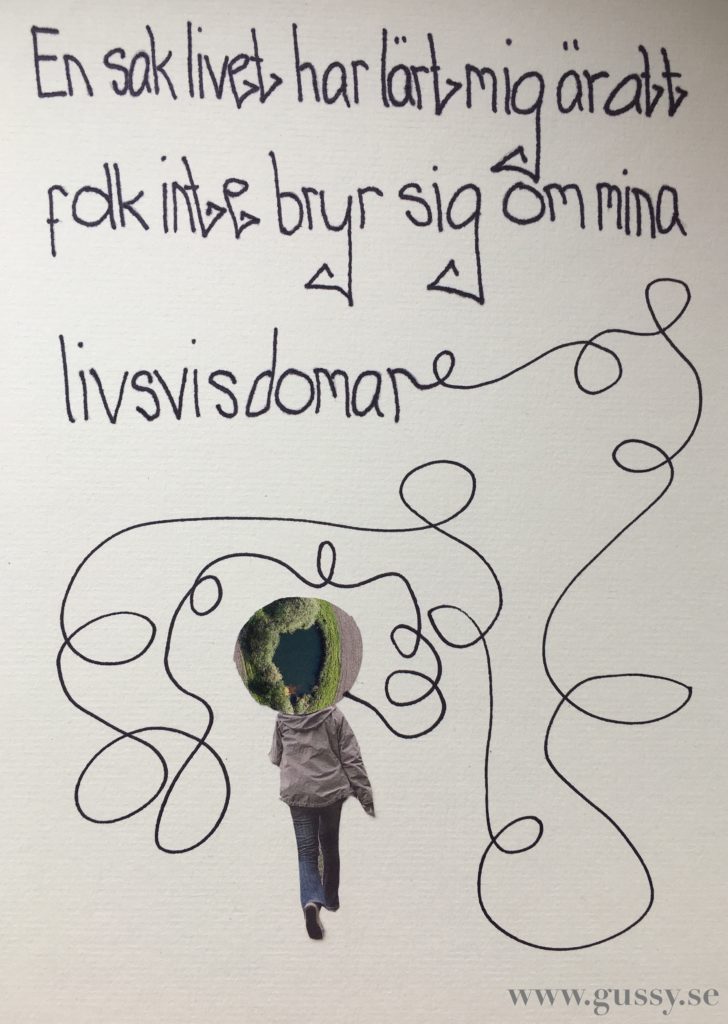 En sak livet har lärt mig är att
folk inte bryr sig om mina
livsvisdomar
www.gussy.se